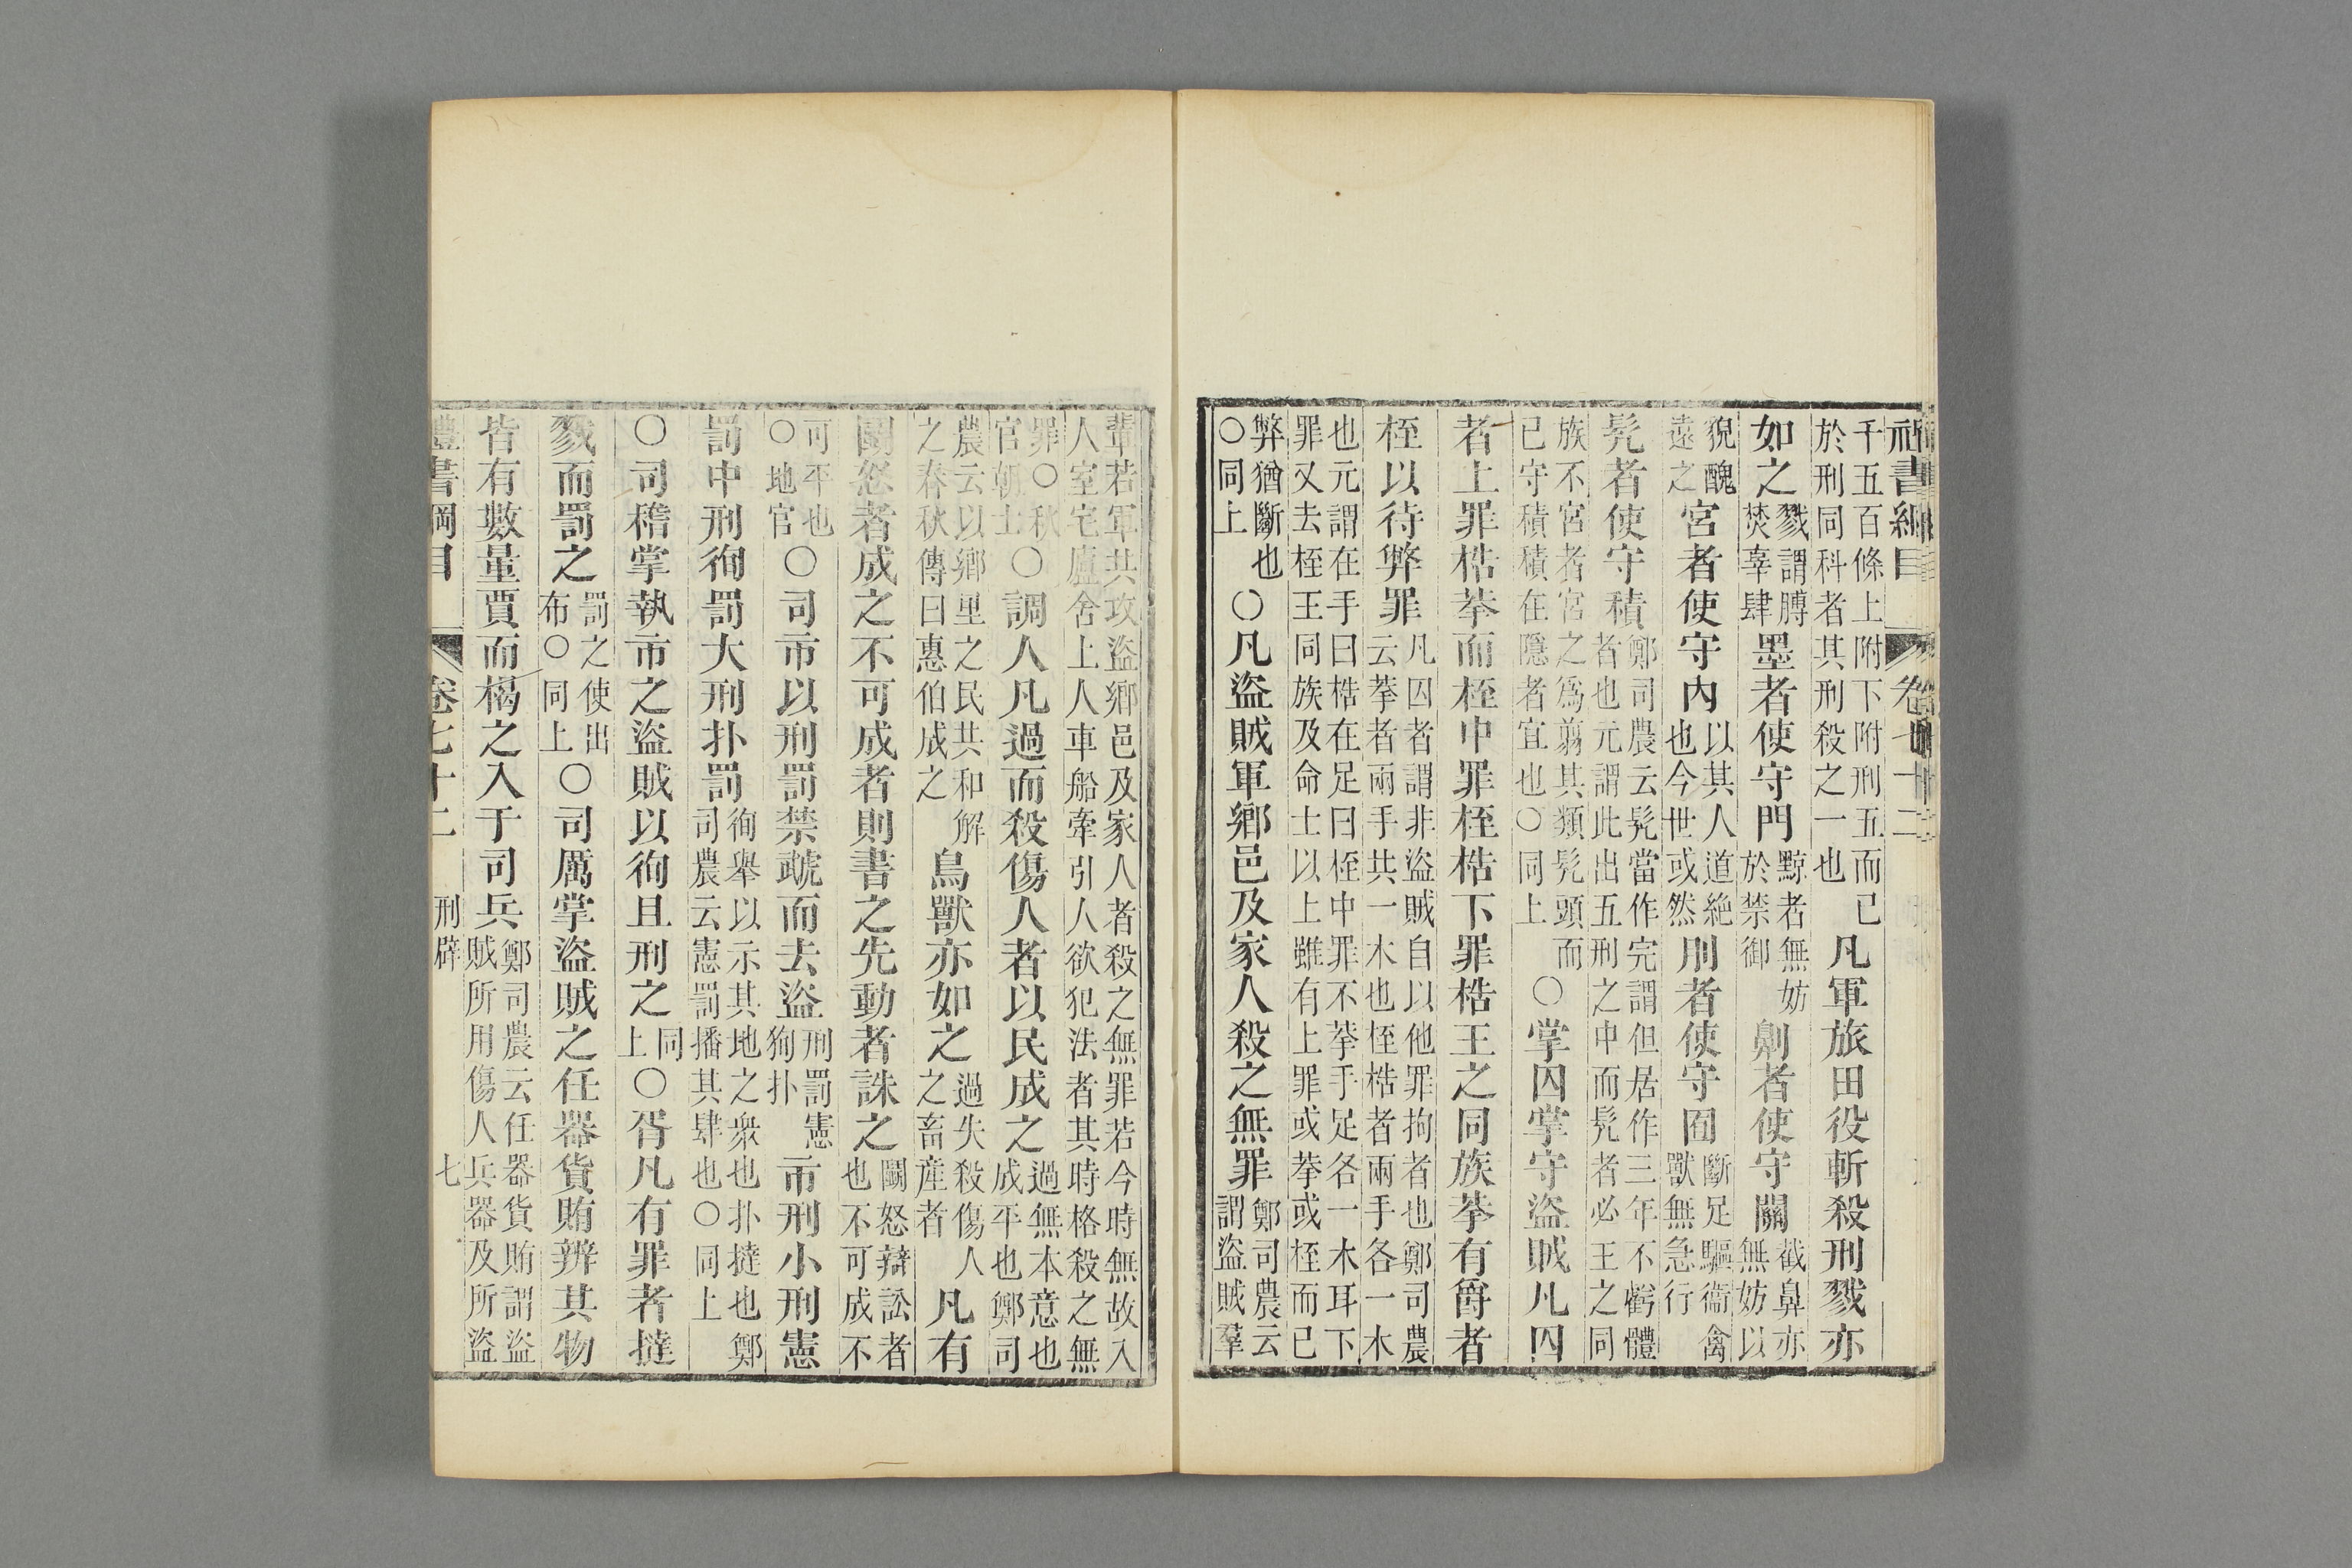 禮書綱目 卷七十二
千五百條上附下附刑五而已於刑同科者其刑殺之一也凡軍旅田役斬殺刑戮亦
如之戮謂膊焚辜肆墨者使守門黥者無妨於禁御劓者使守關截鼻亦無妨以
貌醜遠之宮者使守內以其人道絶也今世或然刖者使守囿斷足驅衞禽獸無急行
髠者使守積鄭司農云髠當作完謂但居作三年不虧體者也元謂此出五刑之中而髠者必王之同
族不宮者宮之爲翦其類髠頭而已守積積在隱者宜也○同上○掌囚掌守盜賊凡囚
者上罪梏拲而桎中罪桎梏下罪梏王之同族拲有爵者
桎以待弊罪凡囚者謂非盜賊自以他罪拘者也鄭司農云拲者兩手共一木也桎梏者兩手各一木
也元謂在手曰梏在足曰桎中罪不拲手足各一木耳下罪又去桎王同族及命士以上雖有上罪或拲或桎而已
弊猶斷也○同上○凡盜賊軍鄉邑及家人殺之無罪鄭司農云謂盜賊羣
輩若軍共攻盜鄉邑及家人者殺之無罪若今時無故入人室宅廬舍上人車船牽引人欲犯法者其時格殺之無
罪○秋官朝士○調人凡過而殺傷人者以民成之過無本意也成平也鄭司
農云以鄉里之民共和解之春秋傳曰惠伯成之鳥獸亦如之過失殺傷人之畜産者凡有
鬭怒者成之不可成者則書之先動者誅之鬭怒辯訟者也不可成不
可平也○地官○司市以刑罰禁虣而去盜刑罰憲徇扑市刑小刑憲
罰中刑徇罰大刑扑罰徇舉以示其地之衆也扑撻也鄭司農云憲罰播其肆也○同上
○司稽掌執市之盜賊以徇且刑之同上○胥凡有罪者撻
戮而罰之罰之使出布○同上○司厲掌盜賊之任器貨賄辨其物
皆有數量賈而楬之入于司兵鄭司農云任器貨賄謂盜賊所用傷人兵器及所盜
禮書綱目 卷七十二 刑辟 七